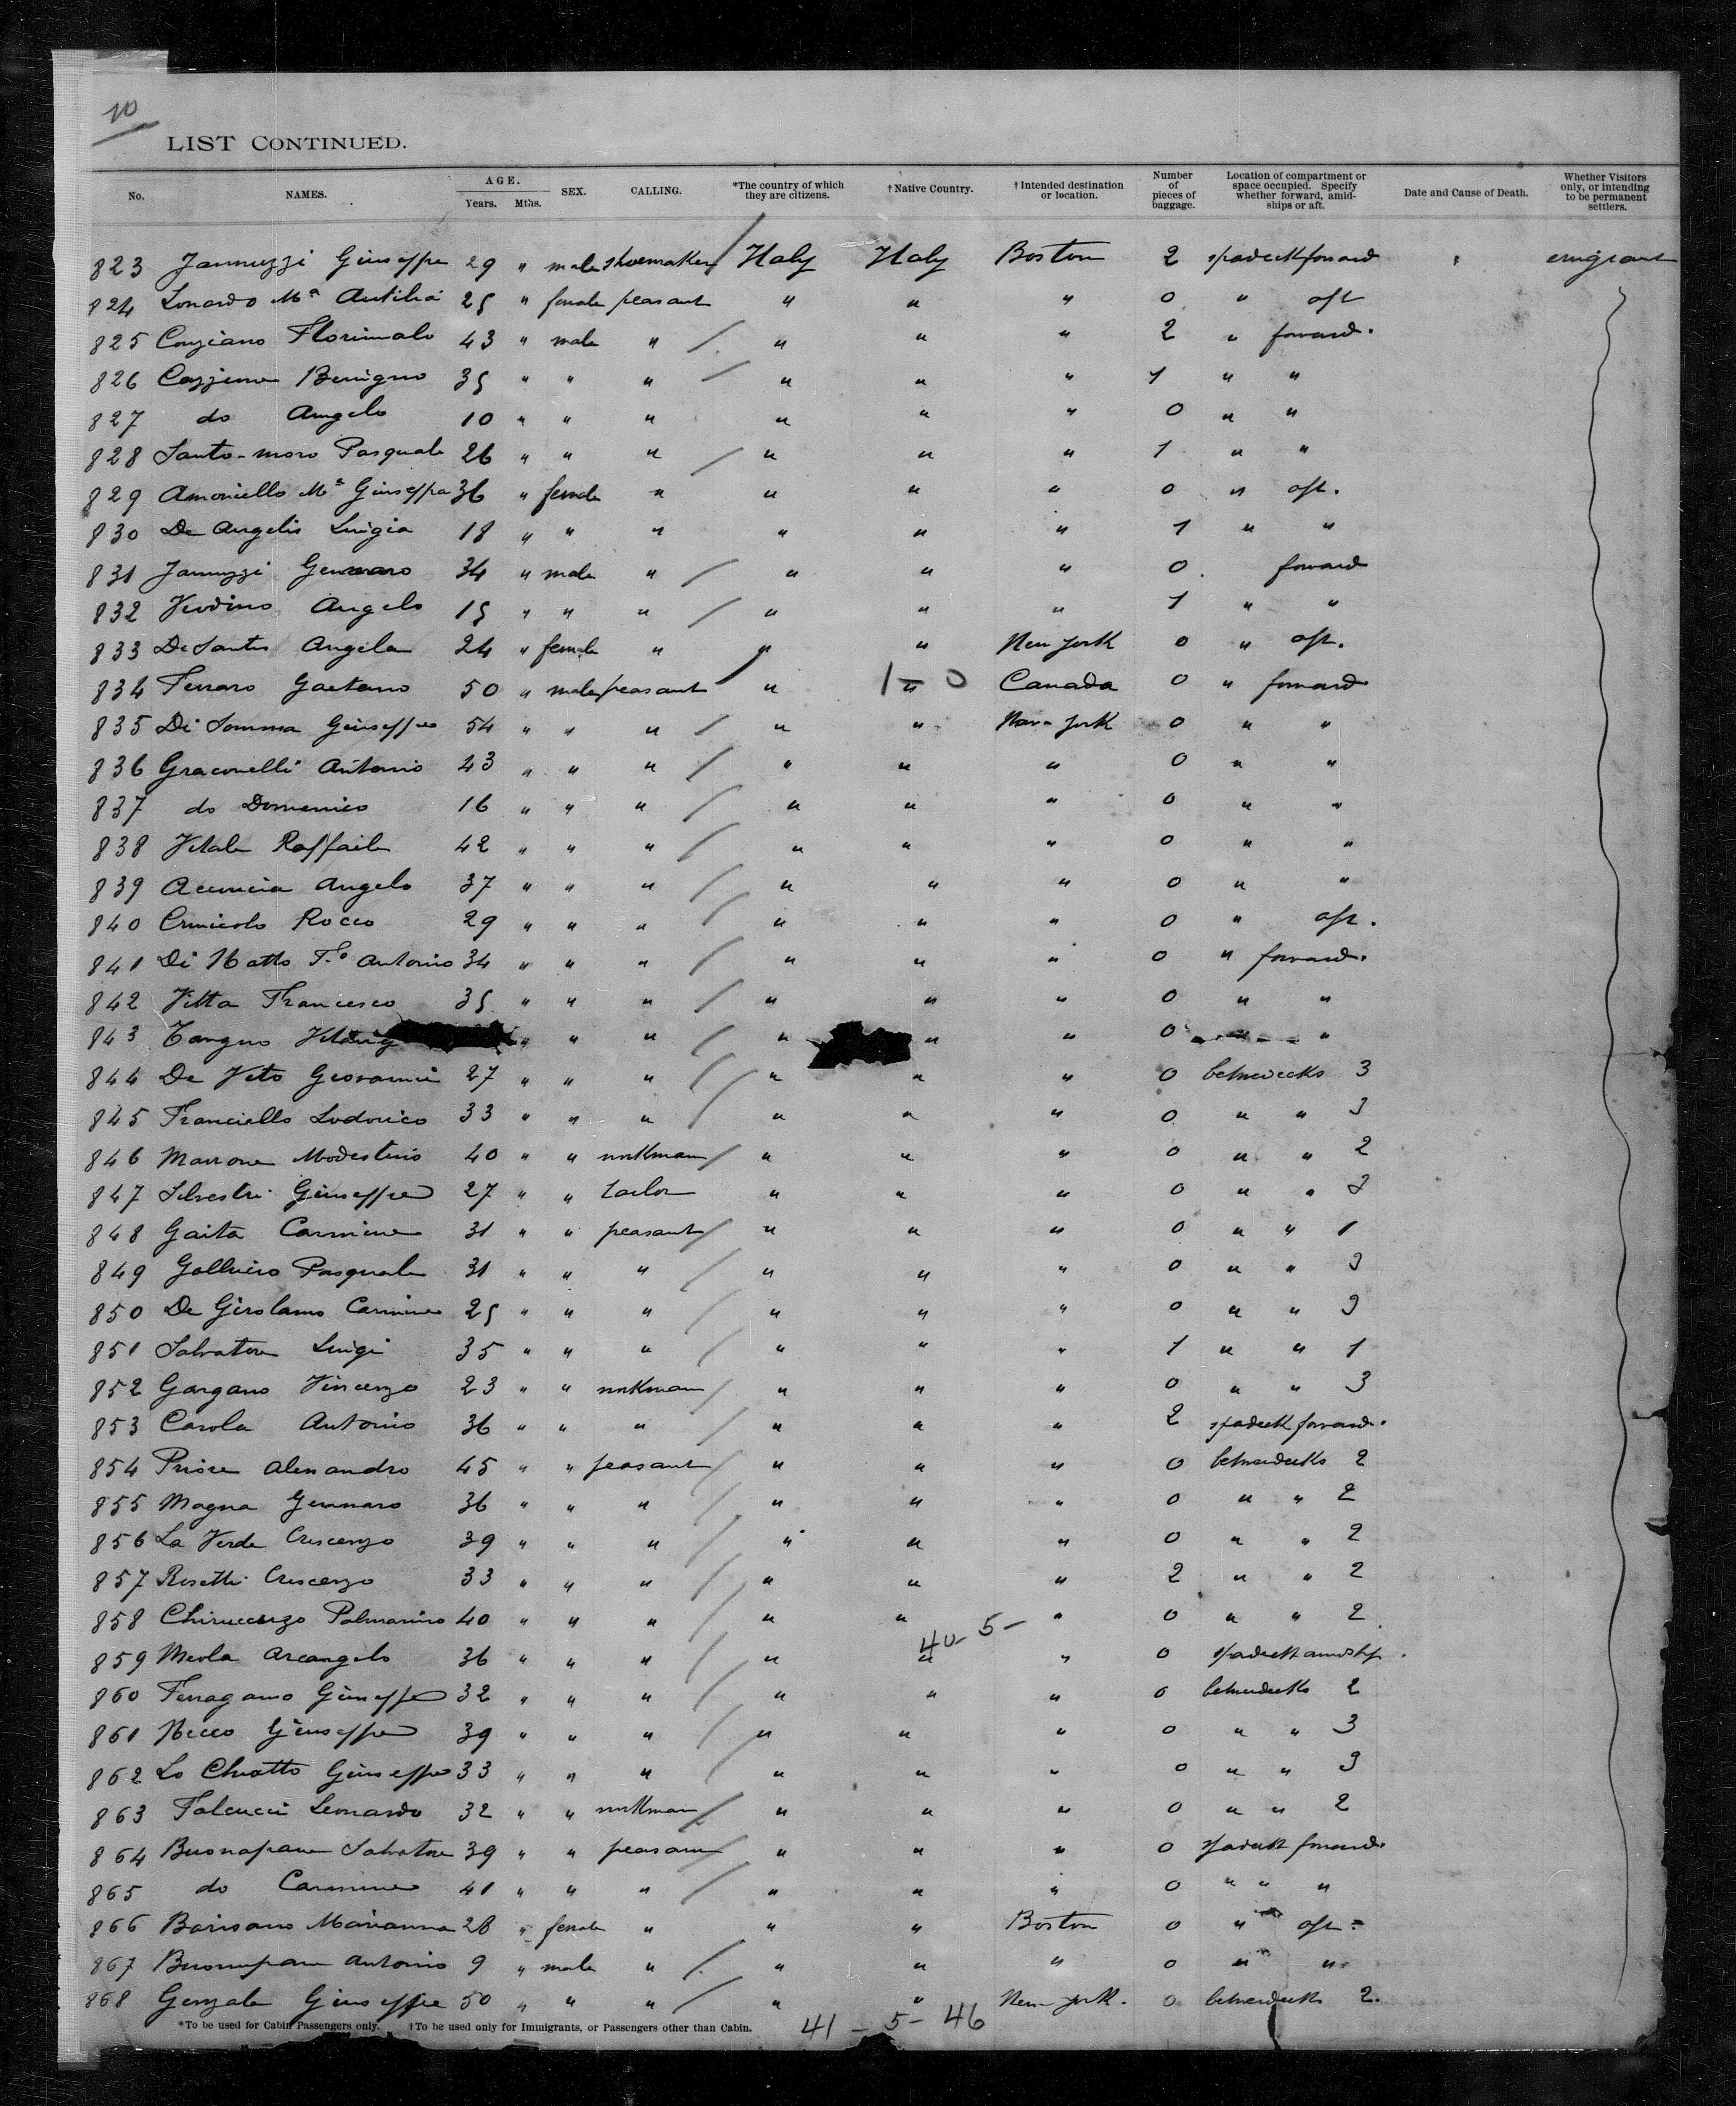 10
LIST CONTINUED.
No. NAMES. AGE. Years. Mths. SEX. CALLING. *The country of which they are citizens. †Native Country. †Intended destination or location. Number of pieces of baggage. Location of compartment or space occupied. Specify whether forward, amid-ships or aft. Date and Cause of Death. Whether Visitors only, or intending to be permanent settlers.
823 Jannuzzi Giuseppe 29 " male shoemaker Italy Italy Boston 2 spardeck forward emigrant
824 Lonardo Ma 25 " female peasant " " " 0 " aft
825 43 " male " " " " 2 " forward.
826 Benigno 35 " " " " " " 1 " "
827 do Angelo 10 " " " " " " 0 " "
828 Santo-moro Pasquale 26 " " " " " " 1 " "
829 Amoriello Ma Giuseppa 36 " female " " " " 0 " aft.
830 De Angelis Luigia 18 " " " " " " 1 " "
831 Jannuzzi Gennaro 34 " male " " " " 0 forward
832 Angelo 15 " " " " " " 1 " "
833 De Santis Angela 24 " female " " " New York 0 " aft.
834 Ferraro Gaetano 50 " male peasant " " 1 - 0 Canada 0 " forward
835 Di Somma Giuseppe 54 " " " " " New-York 0 " "
836 Graconelli Antonio 43 " " " " " " 0 " "
837 do Domenico 16 " " " " " " 0 " "
838 Vitale Raffaele 42 " " " " " " 0 " "
839 Angelo 37 " " " " " " 0 " "
840 Rocco 29 " " " " " " 0 " aft.
841 Di Antonio 34 " " " " " " 0 " forward.
842 Vitta Francesco 35 " " " " " " 0 " "
843 " " " " " " 0 "
844 De Vito Giovanni 27 " " " " " " 0 betwedecks 3
845 Franciello Lodovico 33 " " " " " " 0 " " 3
846 Marrone Modestino 40 " " workman " " " 0 " " 2
847 Silvestri Giuseppe 27 " " tailor " " " 0 " "
848 Gaita Carmine 31 " " peasant " " " 0 " " 1
849 Pasquale 31 " " " " " " 0 " " 3
850 De Girolamo Carmine 25 " " " " " " 0 " " 3
851 Salvatore Luigi 35 " " " " " " 1 " " 1
852 Gargano Vincenzo 23 " " workman " " " 0 " " 3
853 Carola Antonio 36 " " " " " " 2 spardeck forward.
854 Priore Alessandro 45 " " peasant " " " 0 betwedecks 2
855 Magna Gennaro 36 " " " " " " 0 " " 2
856 La Verde Crescenzo 39 " " " " " " 0 " " 2
857 Rosetti Crescenzo 33 " " " " " " 2 " " 2
858 Palmarino 40 " " " " " " 0 " " 2
40- 5-
859 Meola Arcangelo 36 " " " " " " 0 spardeck amidshp.
860 Ferragamo Giuseppe 32 " " " " " " 0 betwedecks 2
861 Giuseppe 39 " " " " " " 0 " " 3
862 Lo Chiatto Giuseppe 33 " " " " " " 0 " " 3
863 Falcucci Leonardo 32 " " workman " " " 0 " " 2
864 Buonapane Salvatore 39 " " peasant " " " 0 spardeck forward
865 do Carmine 41 " " " " " " 0 " " "
866 Barisano Marianna 28 " female " " " Boston 0 " aft =
867 Buonapane Antonio 9 " male " " " " 0 " "
868 Giuseppe 50 " " " " " New-York. 0 betwedecks 2.
*To be used for Cabin Passengers only. †To be used only for Immigrants, or Passengers other than Cabin.
41 - 5 - 46